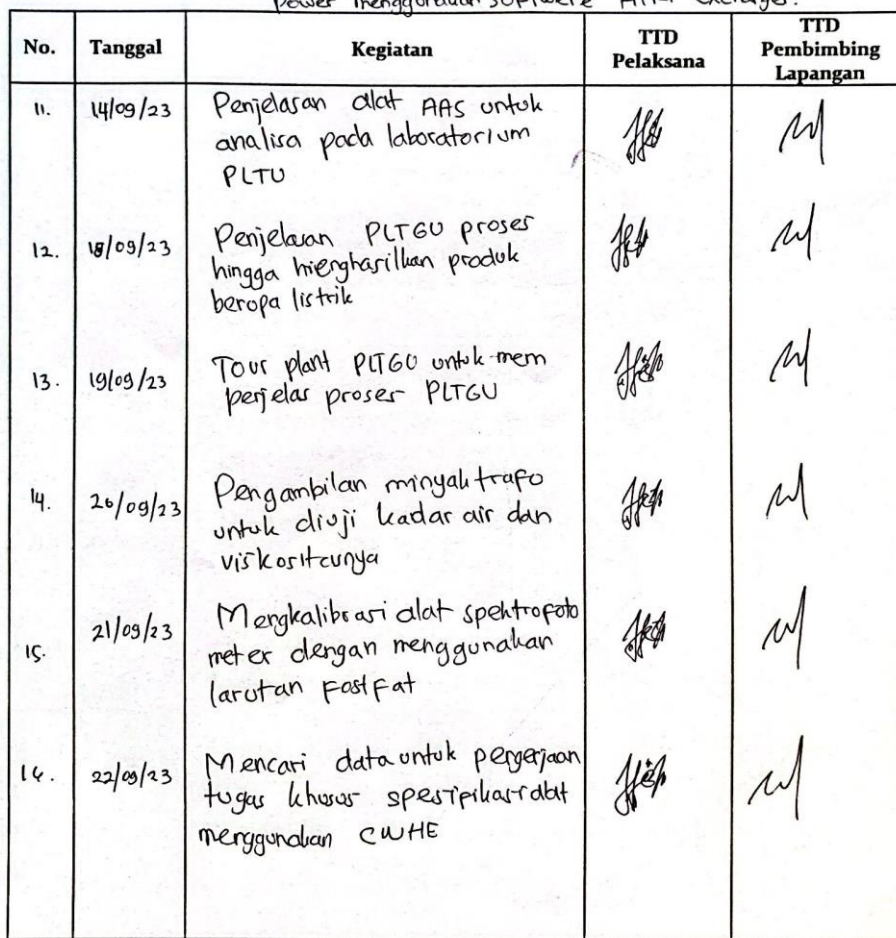 power menggunakan software
No. Tanggal Kegiatan TTD Pelaksana TTD Pembimbing Lapangan
11. 14/09/23 Penjelasan alat AAS untuk
analisa pada laboratorium
PLTU
12. 18/09/23 Penjelasan PLTGU proses
hingga mienghasilkan produk
beropa listrik
13. 19/09/23 Tour plant PLTGU untuk mem
perjelas proses PLTGU
14. 20/09/23 Pengambilan minyak trafo
untuk diuji kadar air dan
viskositasnya
15. 21/09/23 Mengkalibrasi alat spektrofoto
meter dengan menggunakan
larutan Fostfat
16. 22/09/23 Mencari data untuk pengerjaan
tugas khusus spesifikasi alat
menggunakan CWHE